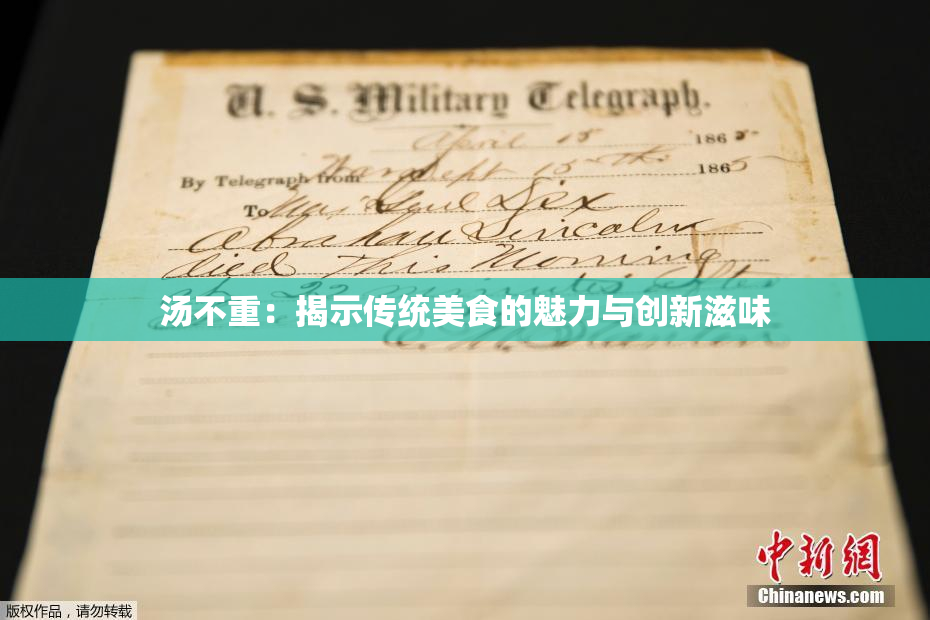 U. S. Military Telegraph.
April 15 1865
By Telegraph from War Dept 15th 1865
To Maj Genl Dix
Abraham Lincoln
died This Morning
at 22 minutes after
汤不重：揭示传统美食的魅力与创新滋味
E. M. Stanton
中新网
Chinanews.com
版权作品，请勿转载